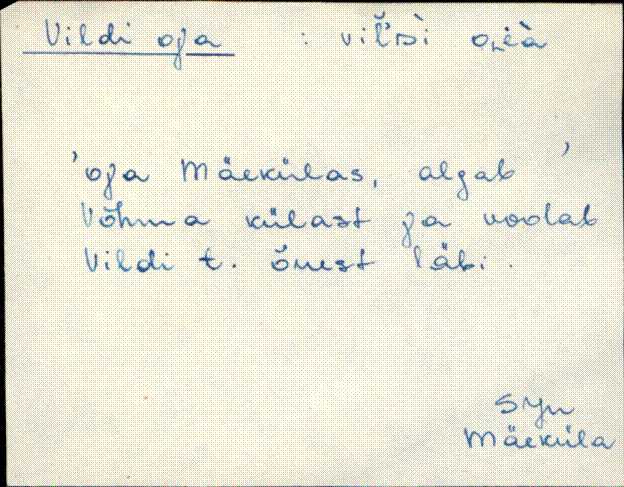 Vildi oja :
'oja Mäekülas, algab '
Võhma külast ja voolab
Vildi t. õuest läbi.
SJn
Mäeküla